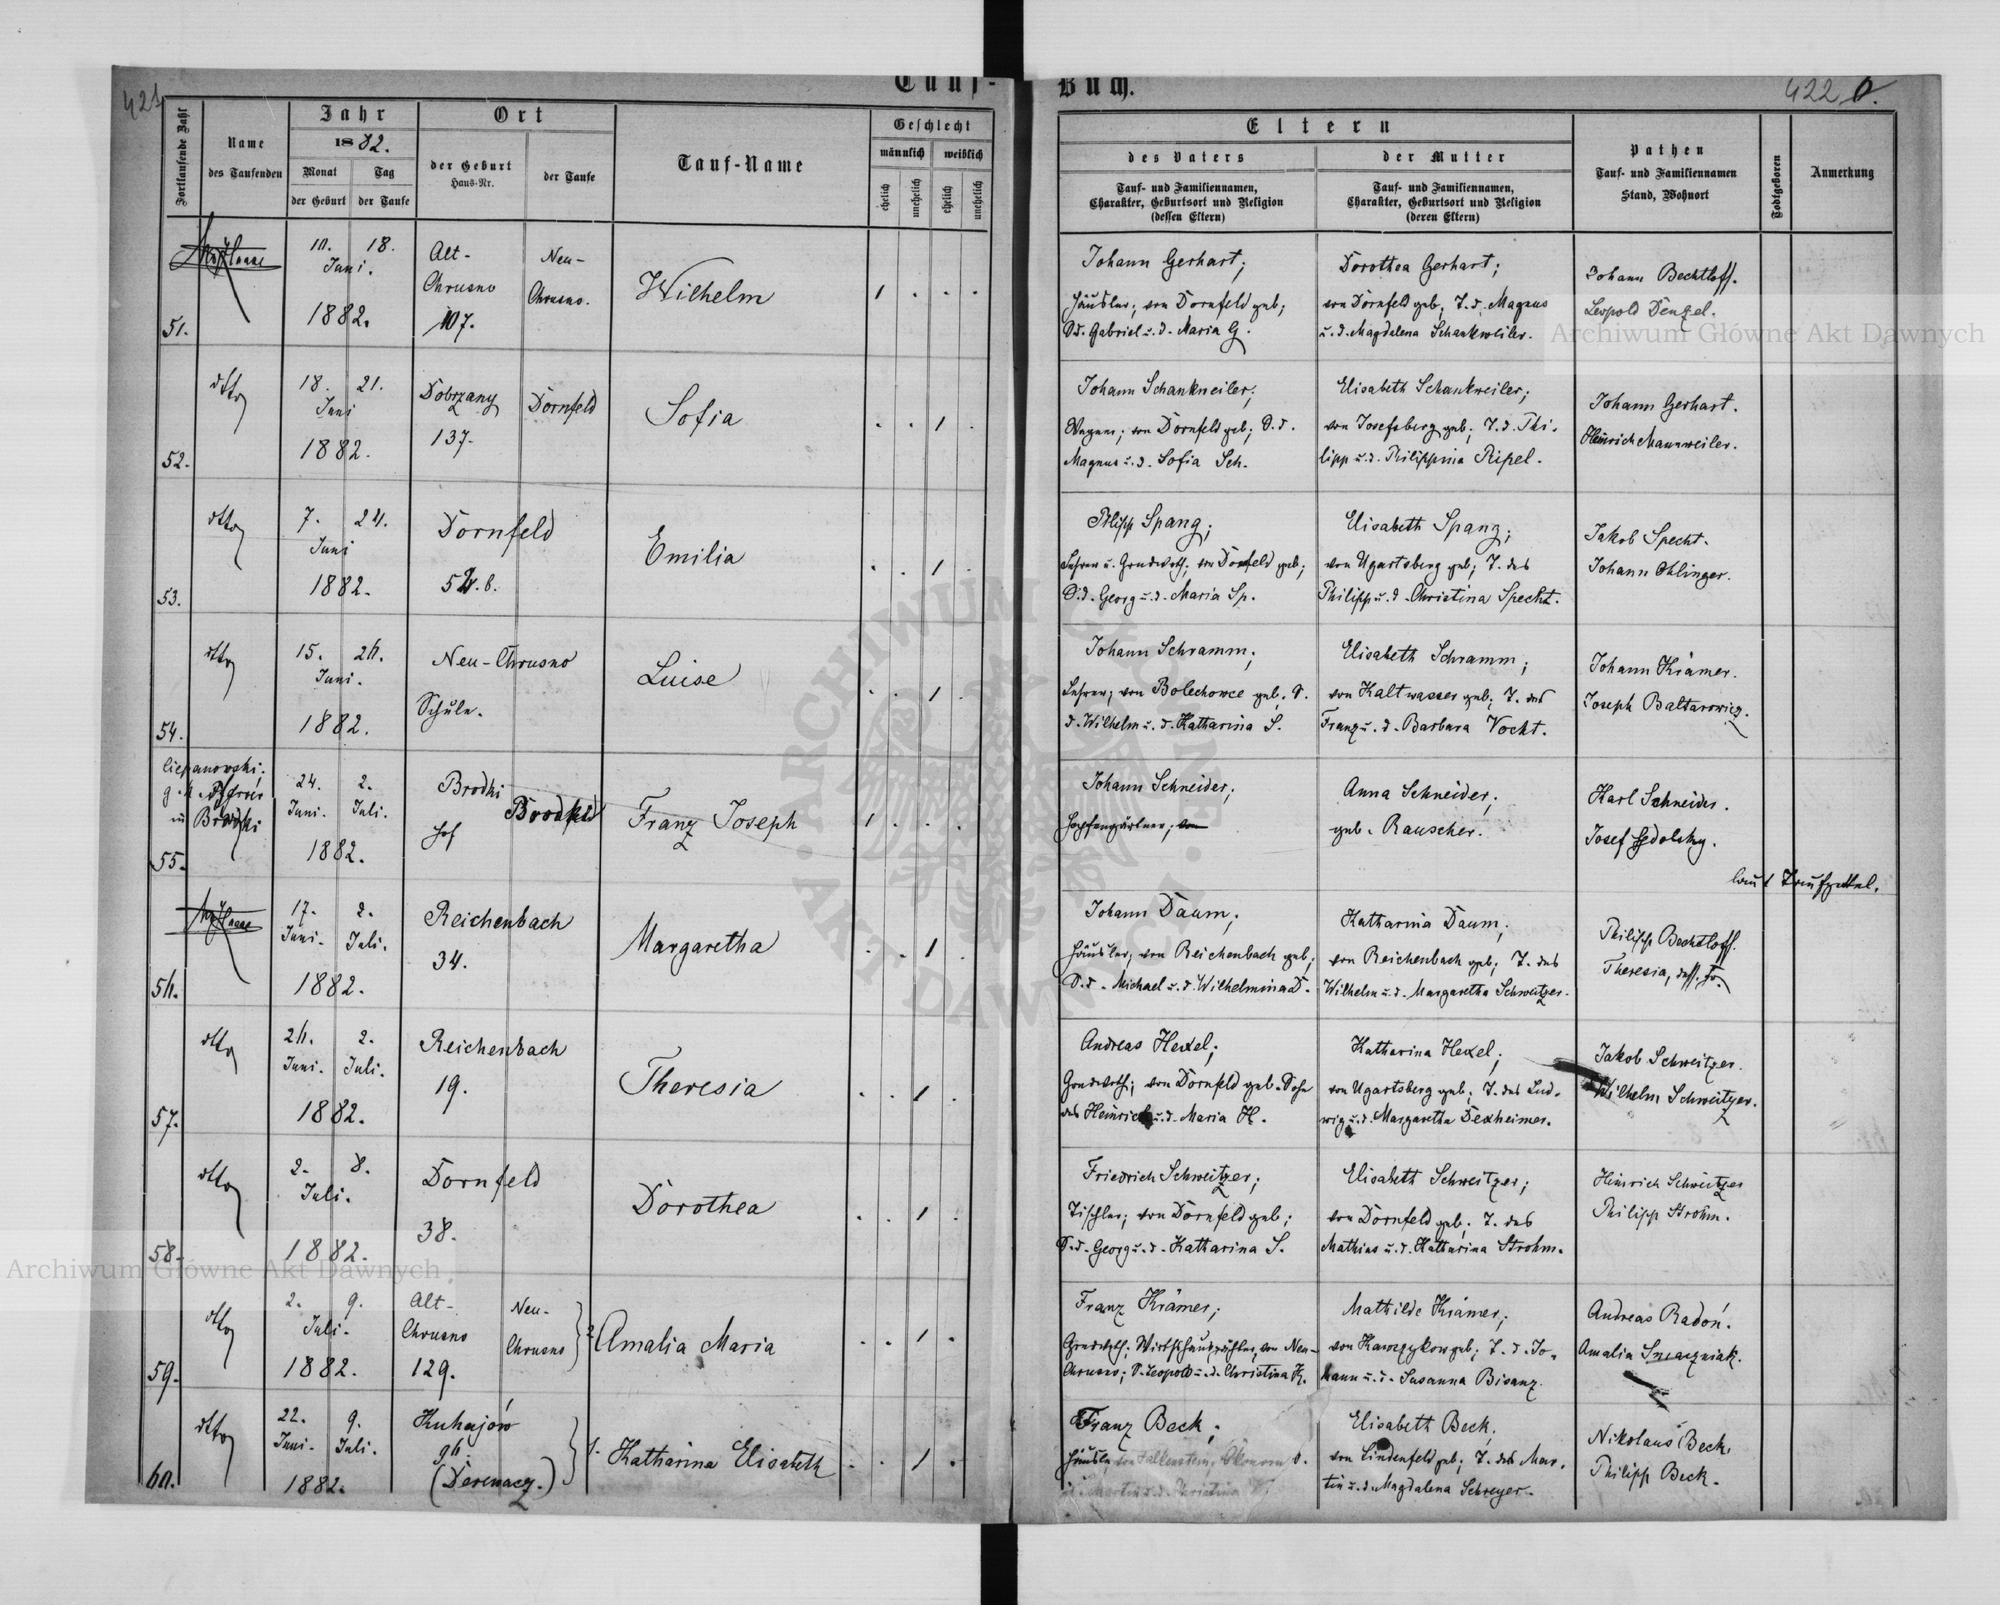 421
Tauf-
Fortlaufende Zahl
Name
des Taufenden
Jahr
1882.
Monat
Tag
der Geburt
der Taufe
Ort
der Geburt
Haus-Nr.
der Taufe
Tauf-Name
Geschlecht
männlich
weiblich
ehelich
unehelich
ehelich
unehelich
Buch.
422
Eltern
des Vaters
Tauf- und Familiennamen,
Charakter, Geburtsort und Religion
(dessen Eltern)
der Mutter
Tauf- und Familiennamen,
Charakter, Geburtsort und Religion
(deren Eltern)
Pathen
Tauf- und Familiennamen
Stand, Wohnort
Todtgeboren
Anmerkung
51.
18.
Juni.
1882.
Alt-
Chrusno
107.
Neu-
Chrusno.
Wilhelm
Johann Gerhart;
Häusler, von Dornfeld geb;
S.d. Gabriel u. d. Maria G.
Dorothea Gerhart;
von Dornfeld geb; T. d. Magnus
u. d. Magdalena Schankweiler.
Johann Bechtloff.
Leopold Denzel.
52.
dtto
18. 21.
Juni
1882.
Dobrzany
137.
Dornfeld
Sofia
Johann Schankweiler;
Wagner; von Dornfeld geb; S. d.
Magnus u. d. Sofia Sch.
Elisabeth Schankweiler;
von Josefsberg geb; T. d. Phi-
lipp u. d. Philippina Ripel.
Johann Gerhart.
Heinrich Mannweiler.
53.
dtto
7. 24.
Juni
1882.
Dornfeld
Emilia
Philipp Spang;
Lehrer u. Grndwrth; von Dornfeld geb;
S.d. Georg u. d. Maria Sp.
Elisabeth Spang;
von Ugartsberg geb; T. des
Philipp u. d. Christina Specht.
Jakob Specht.
Johann Ohlinger.
54.
dtto
15. 26.
Juni.
1882.
Neu-Chrusno
Schule.
Luise
Johann Schramm;
Lehrer; von Bolechowce geb. S.
d. Wilhelm u. d. Katharina S.
Elisabeth Schramm;
von Kaltwasser geb; T. des
Franz u. d. Barbara Vocht.
Johann Krämer.
Joseph Baltarowicz.
55.
Ciepanowski;
in Brodki
24. 2.
Juni. Juli.
1882.
Brodki
Hof
Franz Joseph
Johann Schneider;
Hopfengärtner; von
Anna Schneider;
geb. Rauscher.
Karl Schneider.
laut Taufzettel.
56.
17. 2.
Juni. Juli.
1882.
Reichenbach
34.
Margaretha
Johann Daum;
Häusler, von Reichenbach geb;
S.d. Michael u. d. Wilhelmina D.
Katharina Daum;
von Reichenbach geb; T. des
Wilhelm u. d. Margaretha Schweitzer.
Philipp Bechtloff.
Theresia, dess. Fr.
57.
dtto
26. 2.
Juni. Juli.
1882.
Reichenbach
19.
Theresia
Andreas Hexel;
Grndwrth; von Dornfeld geb. Sohn
des Heinrich u. d. Maria H.
Katharina Hexel;
von Ugartsberg geb; T. des Lud-
wig u. d. Margaretha Dexheimer.
Jakob Schweitzer.
Wilhelm Schweitzer.
58.
dtto
2. 8.
Juli.
1882.
Dornfeld
38.
Dorothea
Friedrich Schweitzer;
Tischler; von Dornfeld geb;
S.d. Georg u. d. Katharina S.
Elisabeth Schweitzer;
von Dornfeld geb; T. des
Mathias u. d. Katharina Strohm.
Heinrich Schweitzer
Philipp Strohm.
59.
dtto
2. 9.
Juli.
1882.
Alt-
Chrusno
129.
Neu-
Chrusno
Amalia Maria
Franz Krämer;
Grndwrth; Wirtshauspächter, von Neu-
Chrusno; S. Leopold u. d. Christina K.
Mathilde Krämer;
geb; T. d. Jo-
hann u. d. Susanna Bisanz.
Andreas Radoń.
Amalia
60.
dtto
22. 9.
Juni. Juli.
1882.
Kuhajów
96.
(Derewacz.)
1. Katharina Elisabeth
Franz Beck;
Häusler, von Falkenstein,
Elisabeth Beck,
von Lindenfeld geb; T. des Mar-
tin u. d. Magdalena Schreyer.
Nikolaus Beck,
Philipp Beck.
Archiwum Główne Akt Dawnych
Archiwum Główne Akt Dawnych
ARCHIWUM GŁÓWNE AKT DAWNYCH